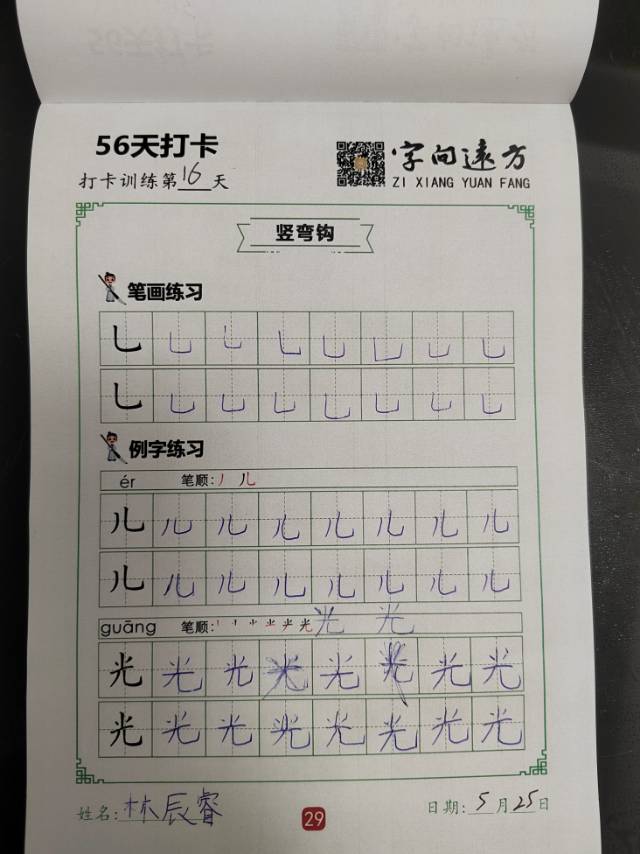 56天打卡
字向远方
打卡训练第16天
ZI XIANG YUAN FANG
竖弯钩
笔画练习
乚 乚 乚 乚 乚 乚 乚 乚
乚 乚 乚 乚 乚 乚 乚 乚
例字练习
ér 笔顺: 丿 儿
儿 儿 儿 儿 儿 儿 儿 儿
儿 儿 儿 儿 儿 儿 儿 儿
guāng 笔顺: 光 光 光
光 光 光 光 光 光 光 光
光 光 光 光 光 光 光 光
姓名: 林辰睿 29 日期: 5月25日